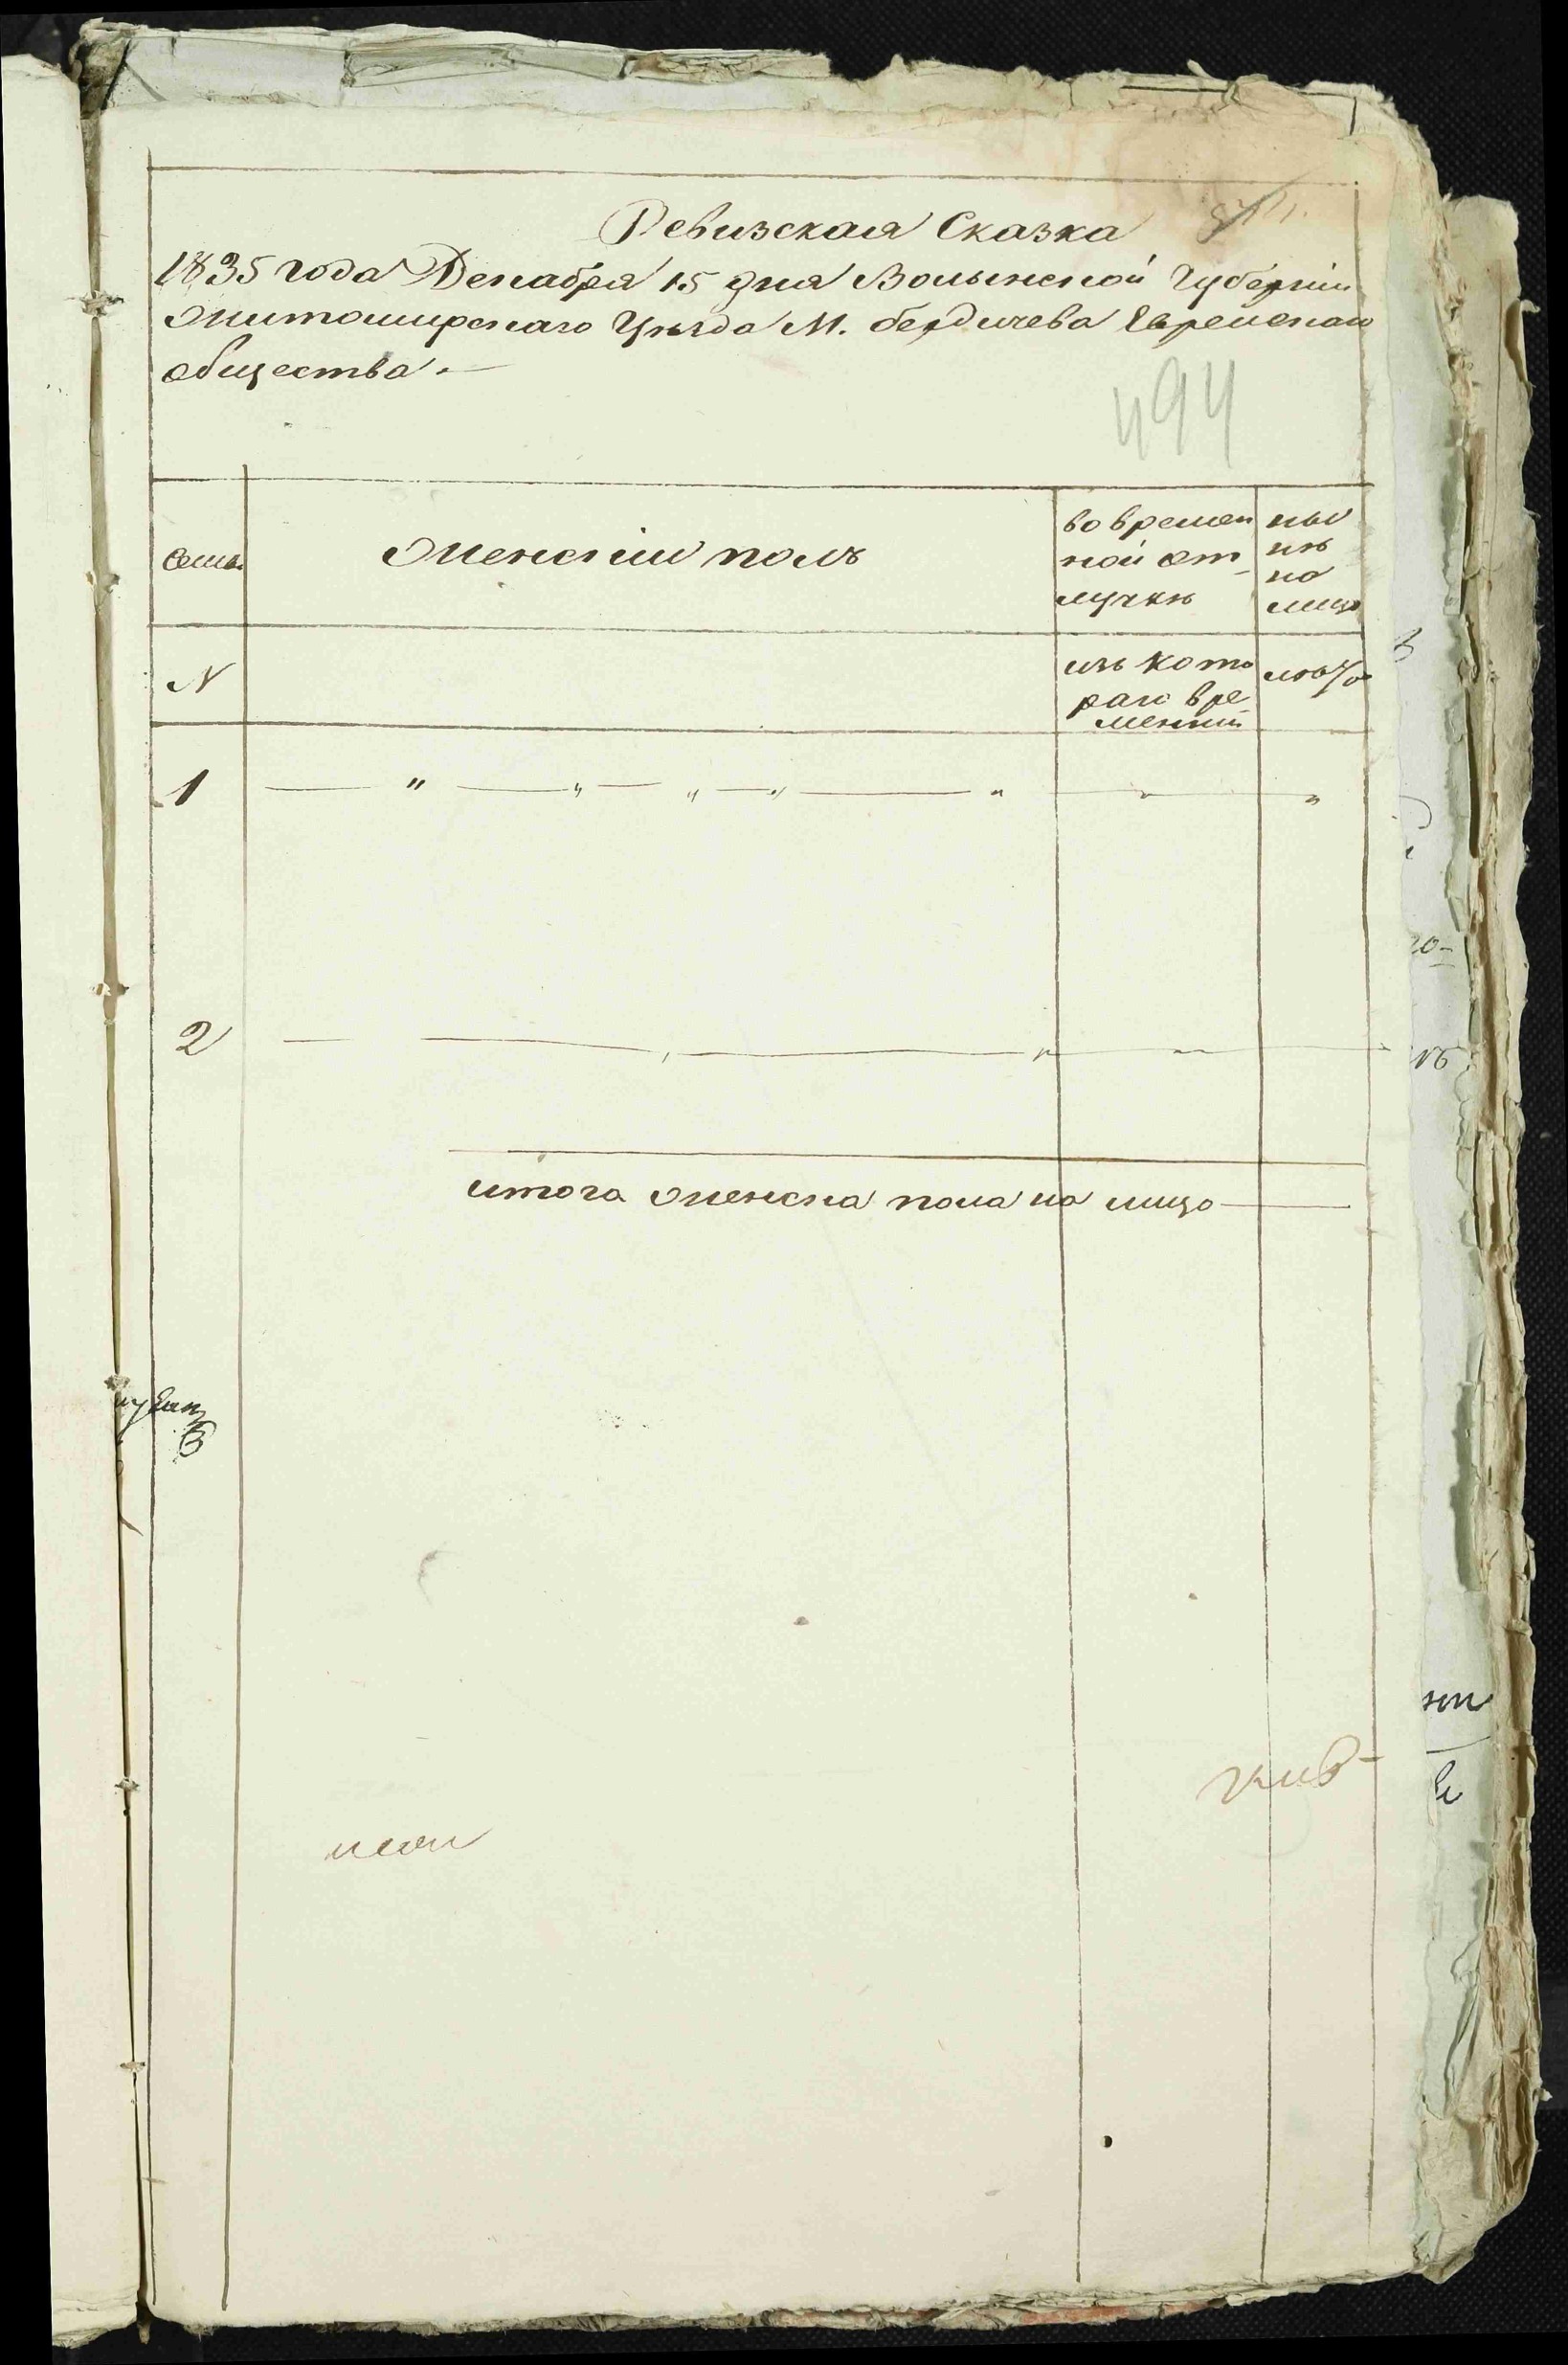 Ревизская Сказка
1835 года Декабря 15 дня Волынской Губернiи
Житомирскаго Уезда М. бердичева Еврейскаго
общества.—
494
семьи
женскiй полъ
во времен
ной от
лучкѣ
ны
нѣ
на
лицо
N
изъ кото
раго вре
мении
лѣта
1 — " — " — " — " — " — " "
2 — — " — " — " —
итога женска пола на лицо —